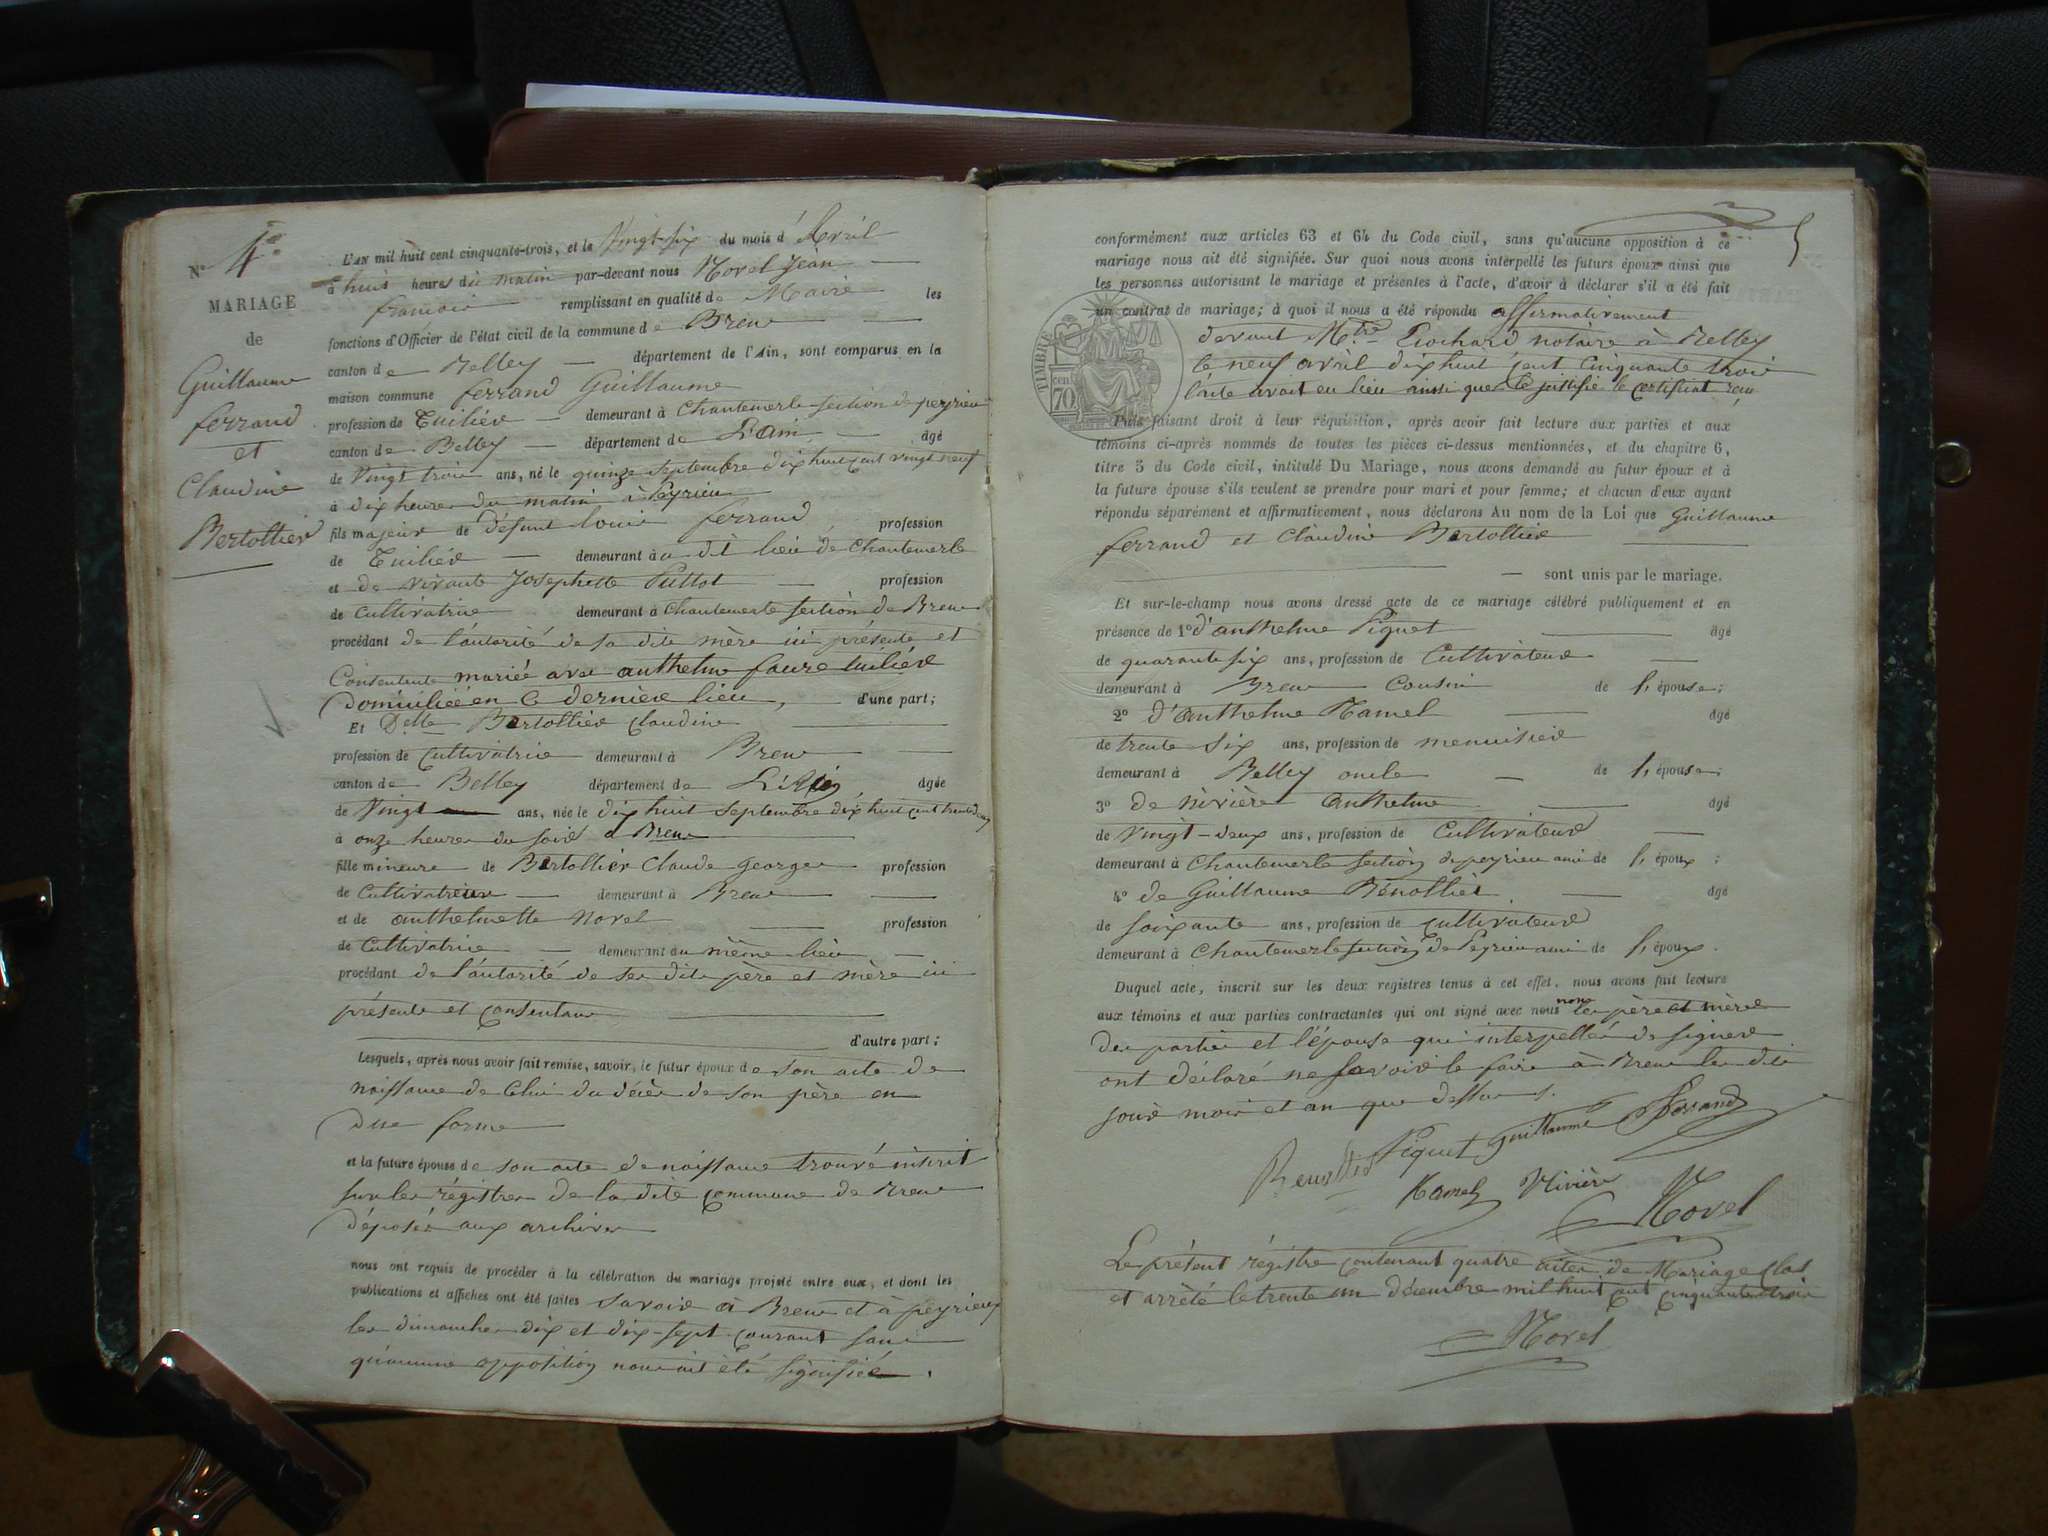 N° 4e
MARIAGE
de
Guillaume
ferrand
et
Claudine
Bertollier
L'AN mil huit cent cinquante-trois, et le Vingt-six du mois d'Avril
à huit heures du matin par-devant nous Norel Jean
francois remplissant en qualité de Maire les
fonctions d'Officier de l'état civil de la commune de Brens
canton de Belley département de l'Ain, sont comparus en la
maison commune ferrand Guillaume
profession de Tuilier demeurant à Chantemerle section de peyrieu
canton de Belley département de L'ain âgé
de Vingt trois ans, né le quinze septembre dix huit cent vingt neuf
à dix heures du matin à Peyrieu
fils majeur de défunt Louis ferrand profession
de Tuilier demeurant au dit lieu de Chantemerle
et de vivante Josephette Puttot profession
de Cultivatrice demeurant à Chantemerle section de Brens
procédant de l'autorité de sa dite mère ici présente et
Consentente mariée avec anthelme faure tuilier
Domiciliée en ce dernier lieu, d'une part;
Et Delle Bertollier Claudine
profession de Cultivatrice demeurant à Brens
canton de Belley département de L'Ain âgée
de Vingt ans, née le dix huit septembre dix huit cent trente deux
à onze heures du soir à Brens
fille mineure de Bertollier Claude George profession
de Cultivateur demeurant à Brens
et de anthelmette Norel profession
de Cultivatrice demeurant au même lieu
procédant de l'autorité de ses dits père et mère ici
présents et Consentans
d'autre part;
Lesquels, après nous avoir fait remise, savoir, le futur époux de son acte de
naissance de Celui du décès de son père en
due forme
et la future épouse de son acte de naissance trouvé inscrit
sur les régistres de la dite commune de Brens
déposés aux archives
nous ont requis de procéder à la célébration du mariage projeté entre eux, et dont les
publications et affiches ont été faites savoir à Brens et à peyrieux
les dimanches dix et dix-sept courant sans
qu'aucune opposition nous ait été signifiée.
5
conformément aux articles 63 et 64 du Code civil, sans qu'aucune opposition à ce
mariage nous ait été signifiée. Sur quoi nous avons interpellé les futurs époux ainsi que
les personnes autorisant le mariage et présentes à l'acte, d'avoir à déclarer s'il a été fait
un contrat de mariage; à quoi il nous a été répondu affirmativement
devant Mtre notaire à Belley
le neuf avril dix huit cent cinquante trois
l'acte avait eu lieu ainsi que le justifie le certificat
TIMBRE
cen 70
Puis faisant droit à leur réquisition, après avoir fait lecture aux parties et aux
témoins ci-après nommés de toutes les pièces ci-dessus mentionnées, et du chapitre 6,
titre 5 du Code civil, intitulé Du Mariage, nous avons demandé au futur époux et à
la future épouse s'ils veulent se prendre pour mari et pour femme; et chacun d'eux ayant
répondu séparément et affirmativement, nous déclarons Au nom de la Loi que Guillaume
ferrand et Claudine Bertollier
sont unis par le mariage.
Et sur-le-champ nous avons dressé acte de ce mariage célébré publiquement et en
présence de 1° d'anthelme Piquet âgé
de quarante six ans, profession de Cultivateur
demeurant à Brens Cousin de l'épouse;
2° d'anthelme Ramel âgé
de trente six ans, profession de menuisier
demeurant à Belley oncle de l'épouse;
3° de rivière anthelme âgé
de vingt-deux ans, profession de Cultivateur
demeurant à Chantemerle section de peyrieu ami de l'époux;
4° de Guillaume Benollier âgé
de soixante ans, profession de cultivateur
demeurant à Chantemerle section de Peyrieu ami de l'époux.
Duquel acte, inscrit sur les deux registres tenus à cet effet, nous avons fait lecture
aux témoins et aux parties contractantes qui ont signé avec nous non les père et mère
des parties et l'épouse qui interpellés de signer
ont déclaré ne savoir le faire à Brens les dits
jour mois et an que dessus.
Benollier Piquet guillaume Ferrand
Ramel Rivière Norel
Le présent régistre contenant quatre actes de Mariage Clos
et arrêté le trente un décembre mil huit cent cinquante trois
Norel